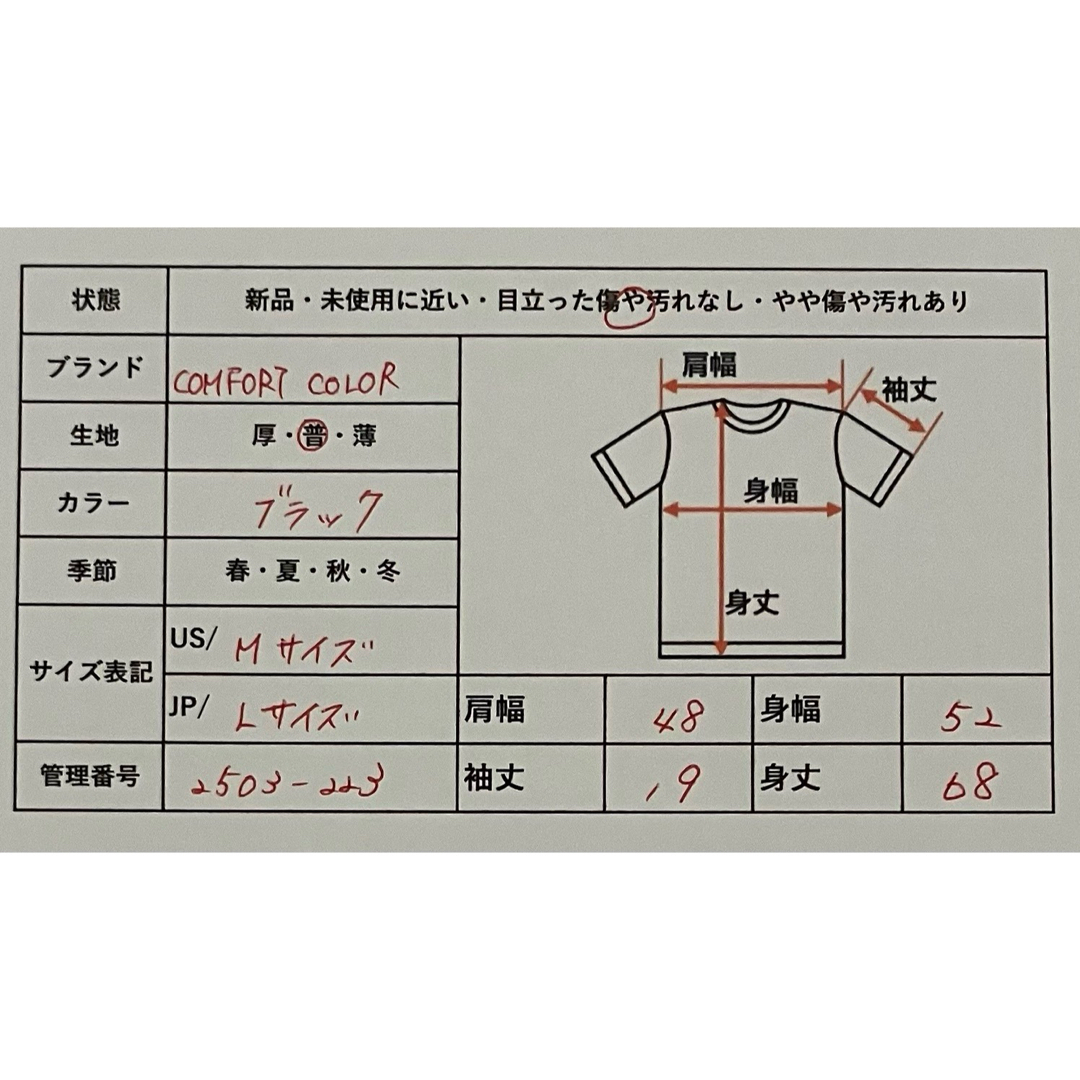 状態 新品・未使用に近い・目立った傷や汚れなし・やや傷や汚れあり
ブランド COMFORT COLOR
生地 厚・普・薄
カラー ブラック
季節 春・夏・秋・冬
サイズ表記 US/ Mサイズ
JP/ Lサイズ
管理番号 2503-223
肩幅
袖丈
身幅
身丈
肩幅 48 身幅 52
袖丈 19 身丈 68